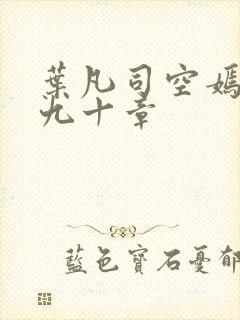 葉凡司空嫣
九十章
藍色寶石憂郁